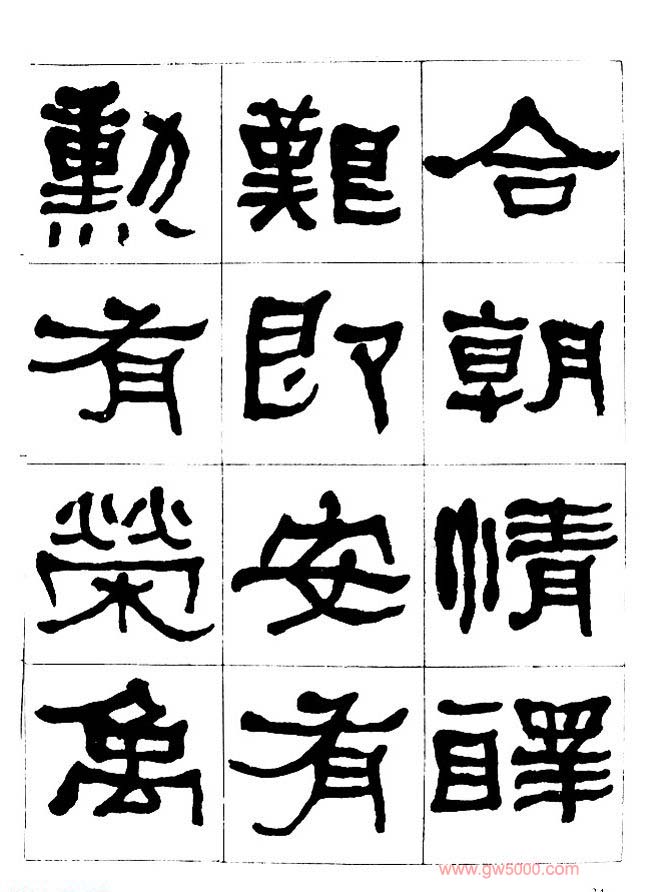 合朝情醳
艱即安有
勳有榮
www.gw5000.com